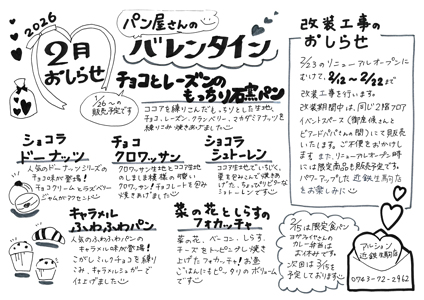 2026
2月
おしらせ
パン屋さんの
バレンタイン
チョコとレーズンの
もっちり石窯パン
1/26〜の
販売予定です
ココアを練りこんだもっちりとした生地に、
チョコ、レーズン、クランベリー、マカダミアナッツを
練りこみ焼きあげました
ショコラ
ドーナッツ
人気のドーナッツシリーズの
チョコ味が登場!
チョコクリームとラズベリー
ジャムがアクセント
チョコ
クロワッサン
クロワッサン生地とココア生地
のしましま模様の可愛い
クロワッサン!チョコレートを包み
焼きあげました
ショコラ
シュトーレン
ココア生地でいちじく、
栗を包みこんで焼きあ
げた、ちょっぴりビターな
シュトーレンです
キャラメル
ふわふわパン
人気のふわふわパンの
キャラメル味が登場!
こがしミルクチョコを練り
こみ、キャラメルシュガーで
仕上げました
菜の花としらすの
フォカッチャ
菜の花、ベーコン、しらす、
チーズをトッピングし焼き
上げたフォカッチャ!お昼
ごはんにもピッタリのボリューム
です
改装工事の
おしらせ
2/23のリニューアルオープンに
むけて、2/12〜2/22まで
改装工事を行います。
改装期間中は、同じ2階フロア
イベントスペース(御座候さんと
ビアードパパさんの間)にて販売
いたします。ご不便をおかけ
します。また、リニューアルオープン時
には限定商品も販売予定です。
パワーアップした近鉄生駒店を
お楽しみに
2/15は限定食パン
カレー食パンは
お休みです。
次回は3/15を
予定しております
アルション
近鉄生駒店
0743-72-2962